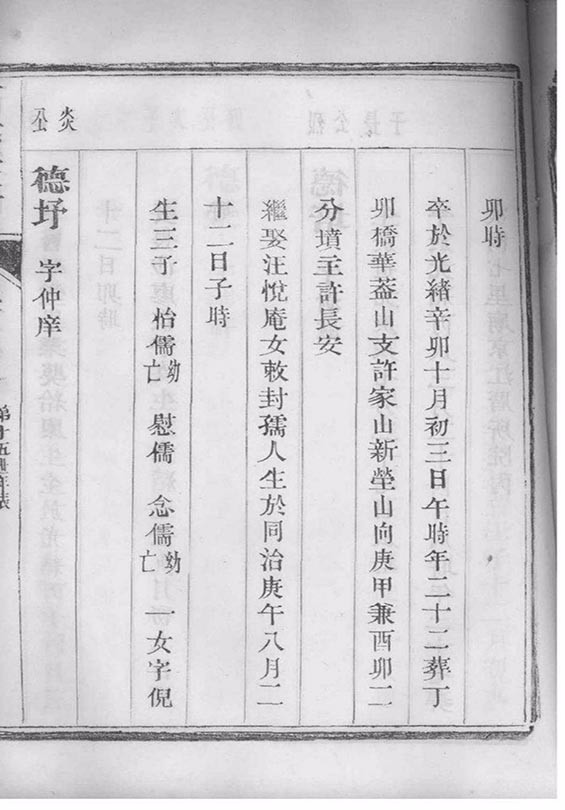 卯時
卒於光緒辛卯十月初三日午時年二十二葬丁
卯橋華葢山支許家山新塋山向庚甲兼酉卯二
分墳主許長安
繼娶汪悅庵女敕封孺人生於同治庚午八月二
十二日子時
生三子 怡儒幼亡 慰儒 念儒幼亡 一女字倪
炎公
德圩 字仲庠
第十五世年表